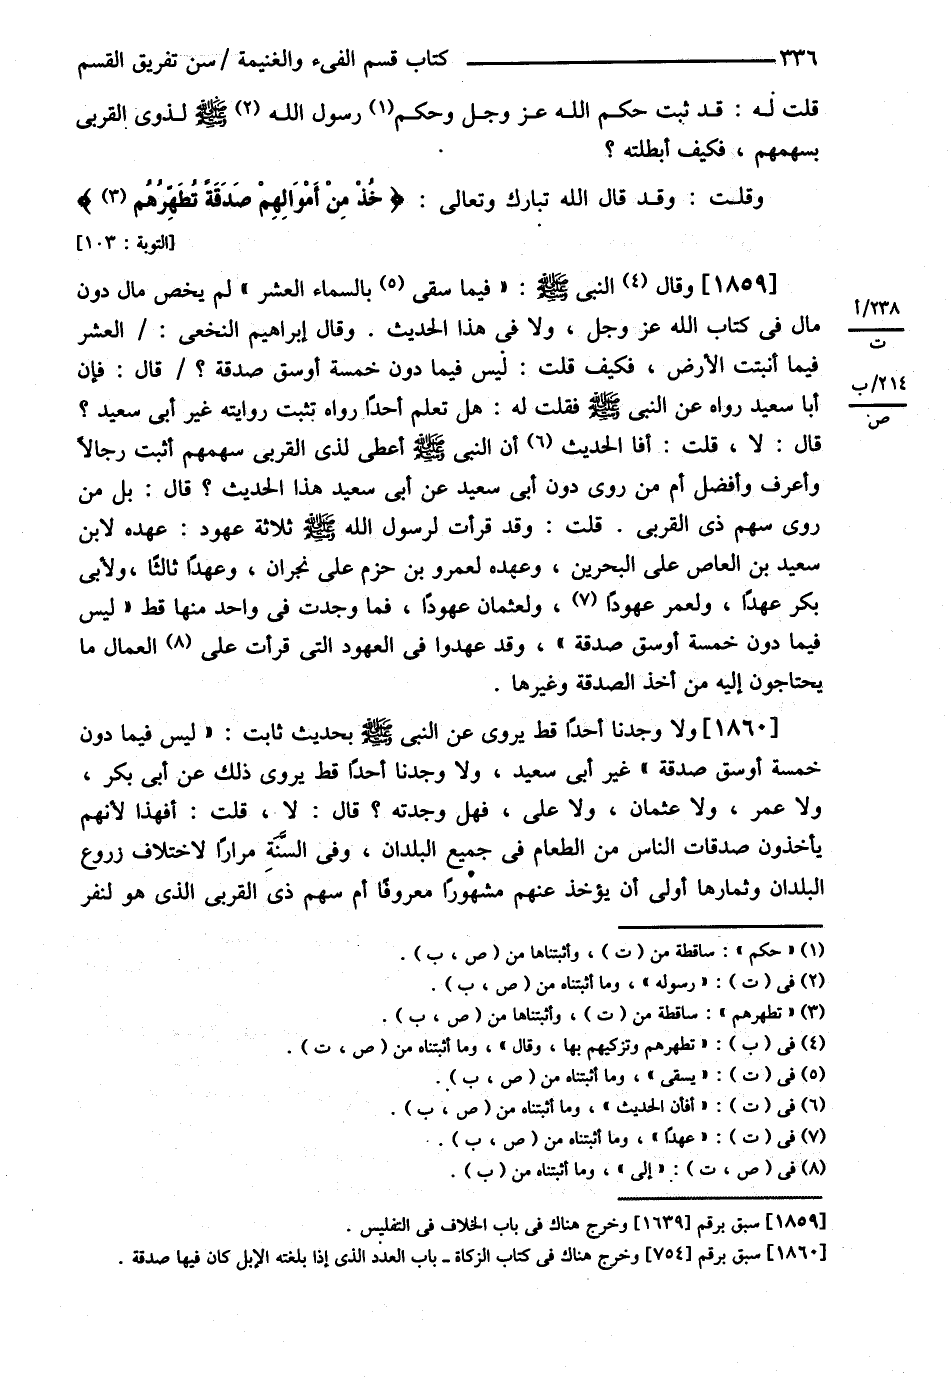 ٣٣٦ ــــــــــــــــ كتاب قسم الفىء والغنيمة / سن تفريق القسم
قلت له : قد ثبت حكم الله عز وجل وحكم(١) رسول الله (٢) ﷺ لذوى القربى
بسهمهم ، فكيف أبطلته ؟
وقلت : وقد قال الله تبارك وتعالى : ﴿ خُذْ مِنْ أَمْوَالِهِمْ صَدَقَةً تُطَهِّرُهُم (٣) ﴾
[التوبة : ١٠٣]
[١٨٥٩] وقال (٤) النبى ﷺ : « فيما سقى (٥) بالسماء العشر » لم يخص مال دون
مال فى كتاب الله عز وجل ، ولا فى هذا الحديث . وقال إبراهيم النخعى : / العشر
فيما أنبتت الأرض ، فكيف قلت : ليس فيما دون خمسة أوسق صدقة ؟ / قال : فإن
أبا سعيد رواه عن النبى ﷺ فقلت له : هل تعلم أحدًا رواه تثبت روايته غير أبى سعيد ؟
قال : لا ، قلت : أفا الحديث (٦) أن النبى ﷺ أعطى لذى القربى سهمهم أثبت رجالاً
وأعرف وأفضل أم من روى دون أبى سعيد عن أبى سعيد هذا الحديث ؟ قال : بل من
روى سهم ذى القربى . قلت : وقد قرأت لرسول الله ﷺ ثلاثة عهود : عهده لابن
سعيد بن العاص على البحرين ، وعهده لعمرو بن حزم على نجران ، وعهدًا ثالثًا ،ولأبى
بكر عهدًا ، ولعمر عهودًا (٧) ، ولعثمان عهودًا ، فما وجدت فى واحد منها قط « ليس
فيما دون خمسة أوسق صدقة » ، وقد عهدوا فى العهود التى قرأت على (٨) العمال ما
يحتاجون إليه من أخذ الصدقة وغيرها .
[١٨٦٠] ولا وجدنا أحدًا قط يروى عن النبى ﷺ بحديث ثابت : « ليس فيما دون
خمسة أوسق صدقة » غير أبى سعيد ، ولا وجدنا أحدًا قط يروى ذلك عن أبى بكر ،
ولا عمر ، ولا عثمان ، ولا على ، فهل وجدته ؟ قال : لا ، قلت : أفهذا لأنهم
يأخذون صدقات الناس من الطعام فى جميع البلدان ، وفى السنَّة مرارًا لاختلاف زروع
البلدان وثمارها أولى أن يؤخذ عنهم مشهورًا معروفًا أم سهم ذى القربى الذى هو لنفر
٢٣٨/أ
ت
٢١٤/ب
ص
(١) « حكم » : ساقطة من ( ت ) ، وأثبتناها من ( ص ، ب ) .
(٢) فى ( ت ) : « رسوله » ، وما أثبتناه من ( ص ، ب ) .
(٣) « تطهرهم » : ساقطة من ( ت ) ، وأثبتناها من ( ص ، ب ) .
(٤) فى ( ب ) : « تطهرهم وتزكيهم بها ، وقال » ، وما أثبتناه من ( ص ، ت ) .
(٥) فى ( ت ) : « يسقى » ، وما أثبتناه من ( ص ، ب ) .
(٦) فى ( ت ) : « أفأن الحديث » ، وما أثبتناه من ( ص ، ب ) .
(٧) فى ( ت ) : « عهدًا » ، وما أثبتناه من ( ص ، ب ) .
(٨) فى ( ص ، ت ) : « إلى » ، وما أثبتناه من ( ب ) .
[١٨٥٩] سبق برقم [١٦٣٩] وخرج هناك فى باب الخلاف فى التفليس .
[١٨٦٠] سبق برقم [٧٥٤] وخرج هناك فى كتاب الزكاة ـ باب العدد الذى إذا بلغته الإبل كان فيها صدقة .